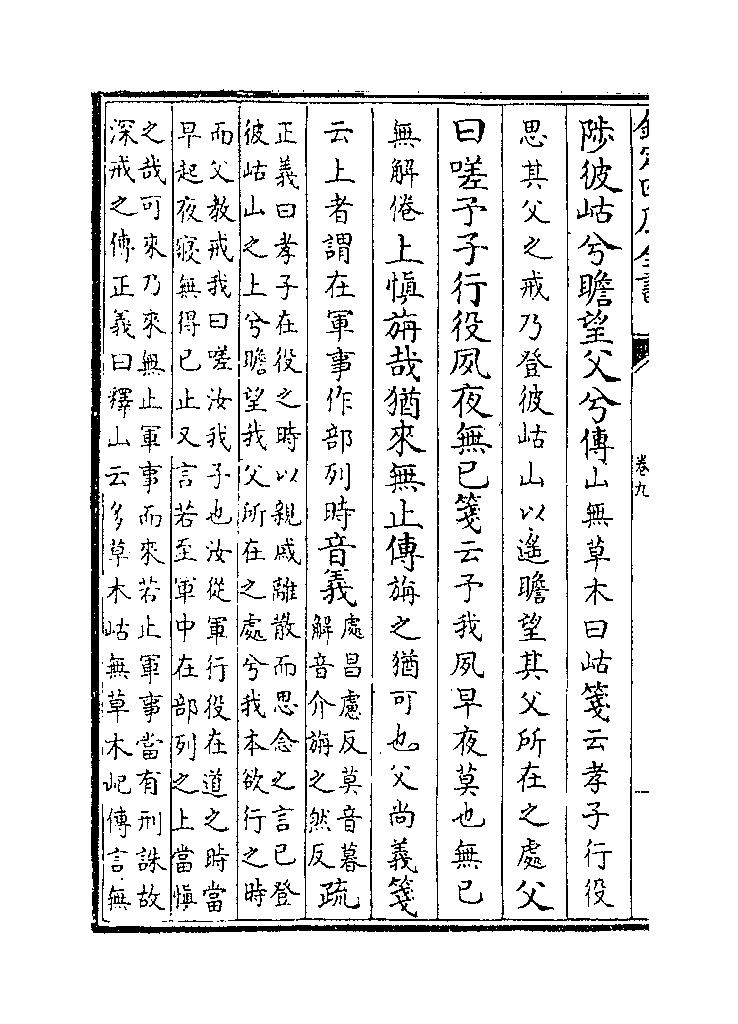 欽定四庫全書
卷九
陟彼岵兮瞻望父兮傳山無草木曰岵箋云孝子行役
思其父之戒乃登彼岵山以遙瞻望其父所在之處父
曰嗟予子行役夙夜無已箋云予我夙早夜莫也無已
無解倦上慎旃哉猶來無止傳旃之猶可也父尚義箋
云上者謂在軍事作部列時音義處昌慮反莫音暮
解音介旃之然反疏
正義曰孝子在役之時以親戚離散而思念之言已登
彼岵山之上兮瞻望我父所在之處兮我本欲行之時
而父教戒我曰嗟汝我子也汝從軍行役在道之時當
早起夜寢無得已止又言若至軍中在部列之上當慎
之哉可來乃來無止軍事而來若止軍事當有刑誅故
深戒之傳正義曰釋山云多草木岵無草木屺傳言無